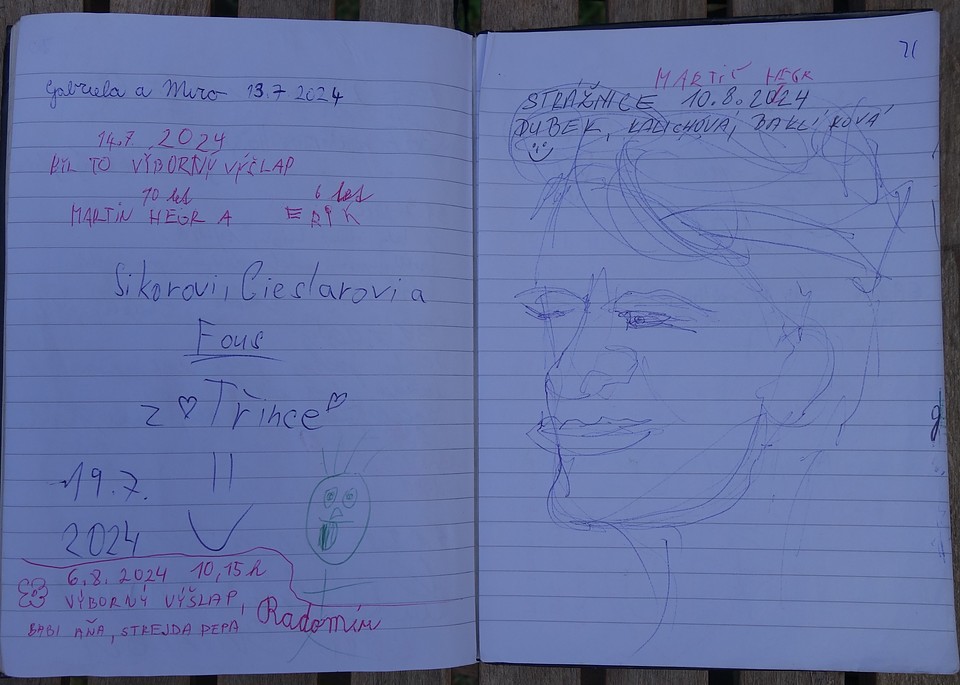 Gabriela a Miro 13.7 2024
14.7. 2024
BYL TO VÝBORNÝ VÝŠLAP
70 let 6 let
MARTIN HEGR A ERIK
Sikorovi, Cieslarovi a
Fous
z Třince
19.7.
2024
6.8.2024 10,15 h
VÝBORNÝ VÝŠLAP,
BABI AŇA, STREJDA PEPA Radomír
71
MARTIN HEGR
STRÁŽNICE 10.8.2024
DUBEK, KALICHOVÁ,